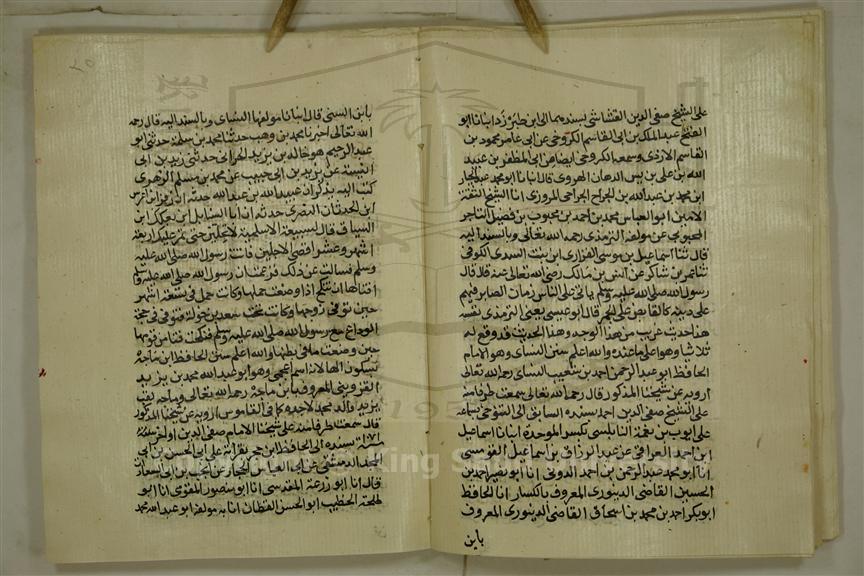 على الشيخ صفي الدين القشاشي بسنده بما الى ابن طبرزد انبانا ابو
الفتح عبد الملك بن ابى القاسم الكروخي عن ابى عامر محمود بن
القاسم الازدى وسمعه الكروخي ايضا من ابى المظفر بن عبيد
الله بن على بن يس الدهان الهروي قالا انبانا ابو محمد عبد الجبار
ابن محمد بن عبد الله بن الجراح الجراحى المروزى انا الشيخ الثقة
الامين ابو العباس محمد بن احمد بن محبوب بن فضيل التاجر
المحبوبى عن مولفه الترمذى رحمه الله تعالى وبالسند اليه
قال ثنا اسماعيل بن موسى الفزارى ابن بنت السدى الكوفى
ثنا عمر بن شاكر عن انس بن مالك رضى الله تعالى عنه قال قال
رسول الله صلى الله عليه وسلم ياتى على الناس زمان الصابر فيهم
على دينه كالقابض على الجمر قال ابو عيسى يعنى الترمذى نفسه
هذا حديث غريب من هذا الوجه وهذا الحديث قد وقع له
ثلاثيا وهو اعلى ما عنده والله اعلم سنن النساى وهو الامام
الحافظ ابو عبد الرحمن احمد بن شعيب النساى رحمه الله تعالى
ارويه عن شيخنا المذكور قال رحمه الله تعالى سمعت طرفا منه
على الشيخ صفى الدين احمد بسنده السابق الى التنوخى بسماعه
على ايوب بن نعمة النابلسى بكسر الموحدة انبانا اسماعيل
ابن احمد العراقى عن عبد الرزاق بن اسماعيل القومسى
انا ابو محمد عبد الرحمن بن احمد الدونى انا ابو نصر احمد بن
الحسين القاضى الدينورى المعروف بالكسار انا الحافظ
ابو بكر احمد بن محمد بن اسحاق القاضى الدينورى المعروف
باين
٢٥
بابن السنى قال انبانا مولفها النساى وبالسند اليه قال رحمه
الله تعالى اخبرنا محمد بن وهب حدثنا محمد بن سلمة حدثنى ابو
عبد الرحيم هو خالد بن يزيد الحرانى حدثنى زيد بن ابى
انيسة عن يزيد بن ابى حبيب عن محمد بن مسلم الزهرى
كتب اليه يذكر ان عبيد الله بن عبد الله حدثه ان زفر بن اوس
ابن الحدثان النصرى حدثه ان ابا السنابل ابن بعكك ابن
السباق قال لسبيعة الاسلمية لا تحلين حتى يمر عليك اربعة
اشهر وعشرا اقصى الاجلين فاتت رسول الله صلى الله عليه
وسلم فسالت عن ذلك فزعمت ان رسول الله صلى الله عليه وسلم
افتاها ان تنكح اذا وضعت حملها وكانت حبلى فى تسعة اشهر
حين توفى زوجها وكانت تحت سعد بن خولة فتوفى فى حجة
الوداع مع رسول الله صلى الله عليه وسلم فنكحت فتى من قومها
حين وضعت ما فى بطنها والله اعلم سنن الحافظ ابن ماجه
بسكون الهاء لانه اسم اعجمى وهو ابو عبد الله محمد بن يزيد
القزوينى المعروف بابن ماجه رحمه الله تعالى وماجه لقب
يزيد والد محمد لا جده كما فى القاموس ارويه عن شيخنا المذكور
قال سمعت طرفا منه على شيخنا الامام صفى الدين اواخر سنة
١٠٧١ بسنده الى الحافظ ابن حجر بقرائته على ابى الحسن بن ابى
المجد الدمشقى عن ابى العباس الحجار عن انجب بن ابى السعادات
قال انا ابو زرعة المقدسى انا ابو منصور المقوى انا ابو
طلحة الخطيب ابو الحسن القطان انا به مولفه ابو عبد الله محمد